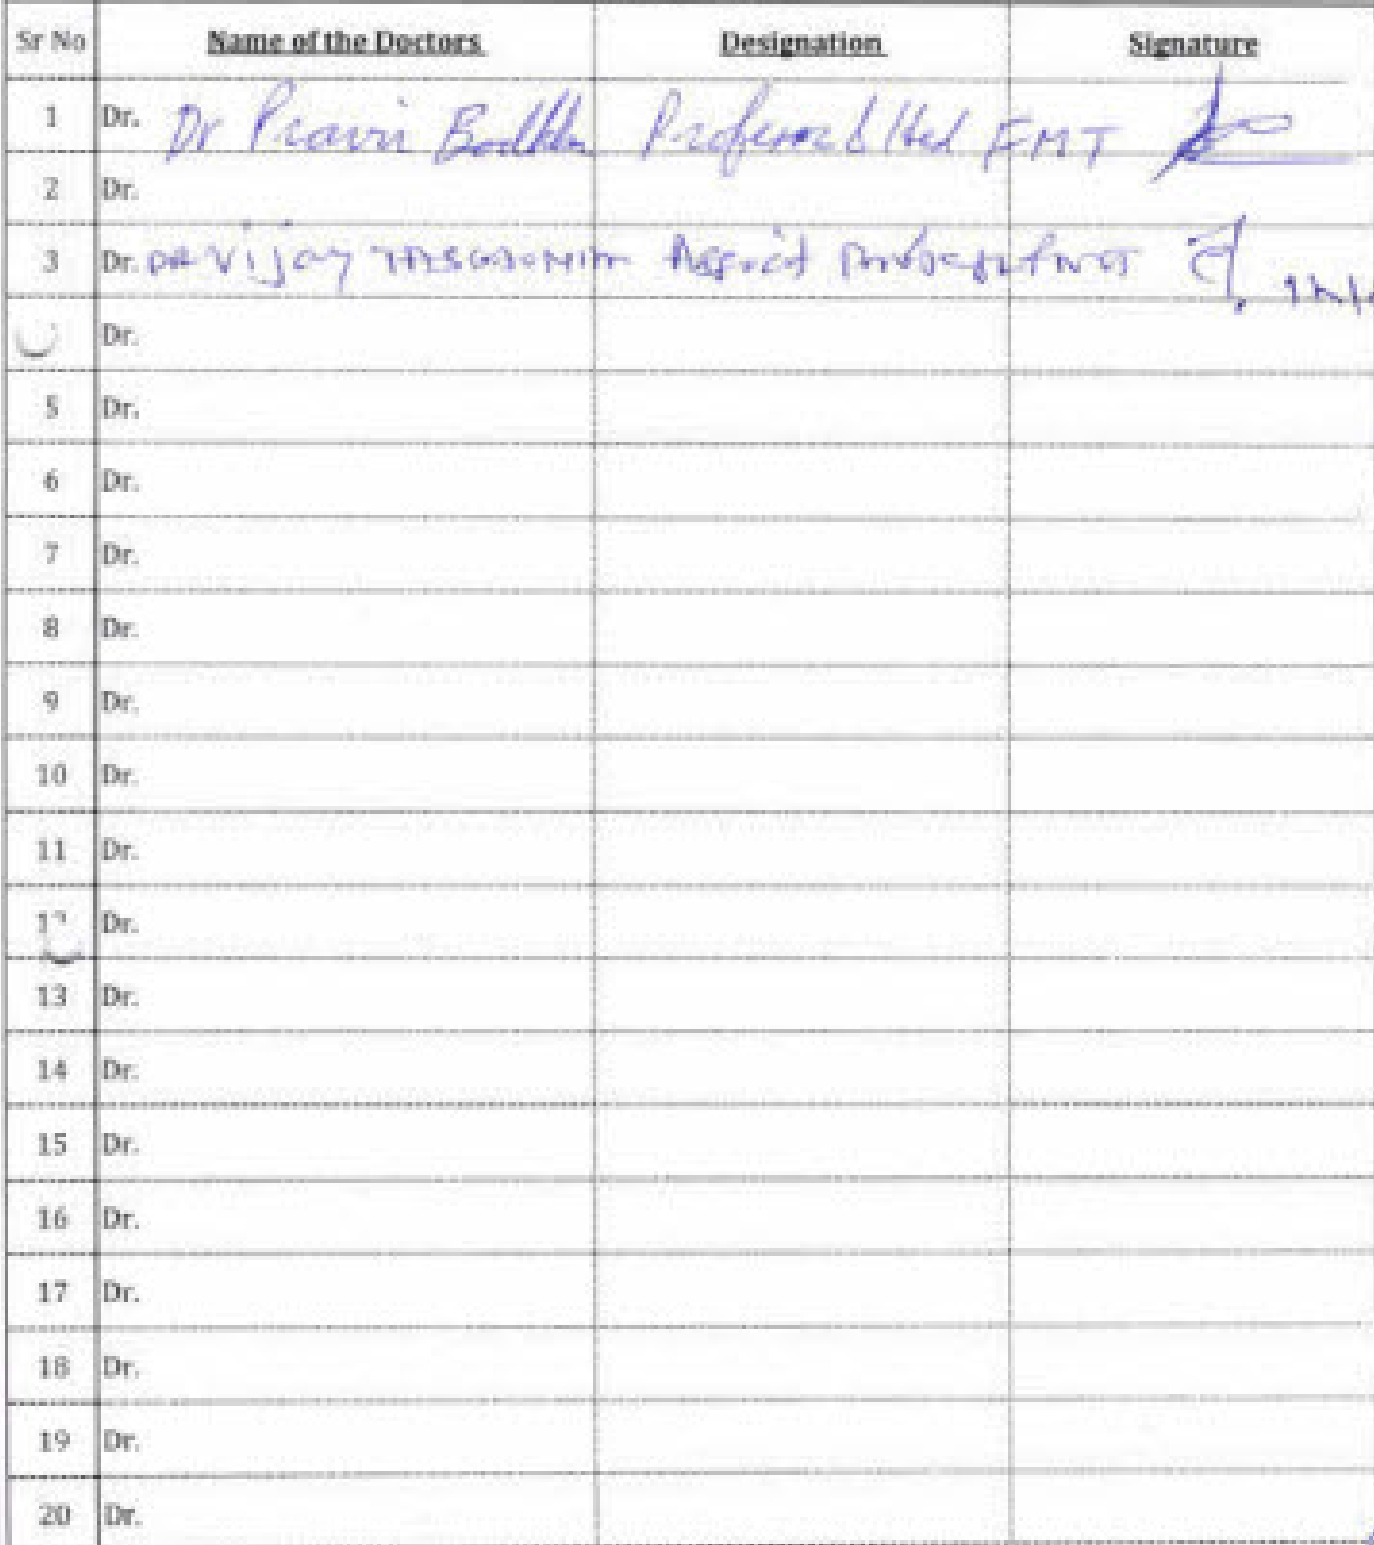 Sr No Name of the Doctors Designation Signature
1 Dr. Dr Pravin Professor & Hod FMT
2 Dr.
3 Dr. DR Vijay
Dr.
5 Dr.
6 Dr.
7 Dr.
8 Dr.
9 Dr.
10 Dr.
11 Dr.
12 Dr.
13 Dr.
14 Dr.
15 Dr.
16 Dr.
17 Dr.
18 Dr.
19 Dr.
20 Dr.